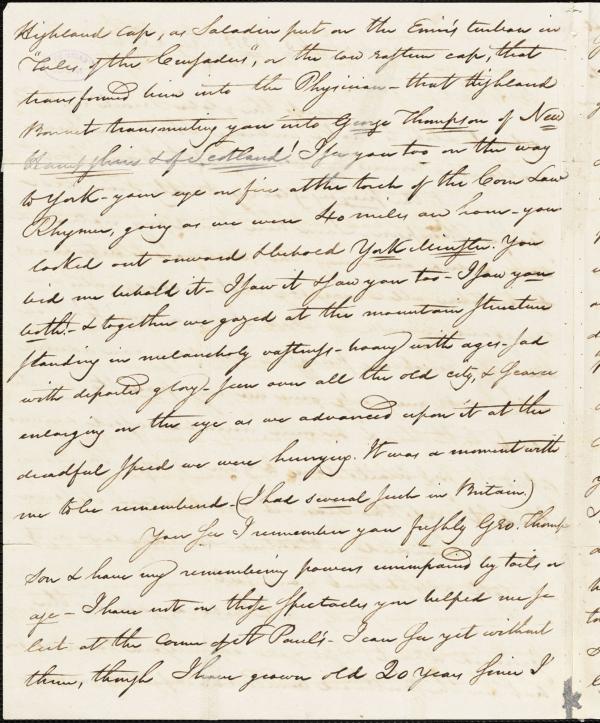 Highland cap, as Saladin put on the Emir's turban in
"Tales of the Crusaders", or the low eastern cap, that
transformed him into the Physician - that Highland
Bonnet transmuting you into George Thompson of New
Hampshire & of Scotland! I see you too on the way
to York - your eye on fire at the touch of the Corn Law
Rhymer, going as we were 40 miles an hour - you
looked out onward & beheld York Minster. You
bid me behold it - I saw it & saw you too - I saw you
both! - & together we gazed at the mountain structure
standing in melancholy vastness - hoary with ages - sad
with departed glory - seen over all the old city, & scarce
enlarging on the eye as we advanced upon it at the
dreadful speed we were hurrying. It was a moment with
me to be remembered. (I had several such in Britain.)
You see I remember you freshly Geo. Thomp-
son & have my remembering powers unimpaired by toils or
age - I have not on those spectacles you helped me se-
lect at the corner of St Paul's - I can see yet without
them, though I have grown old 20 years since I